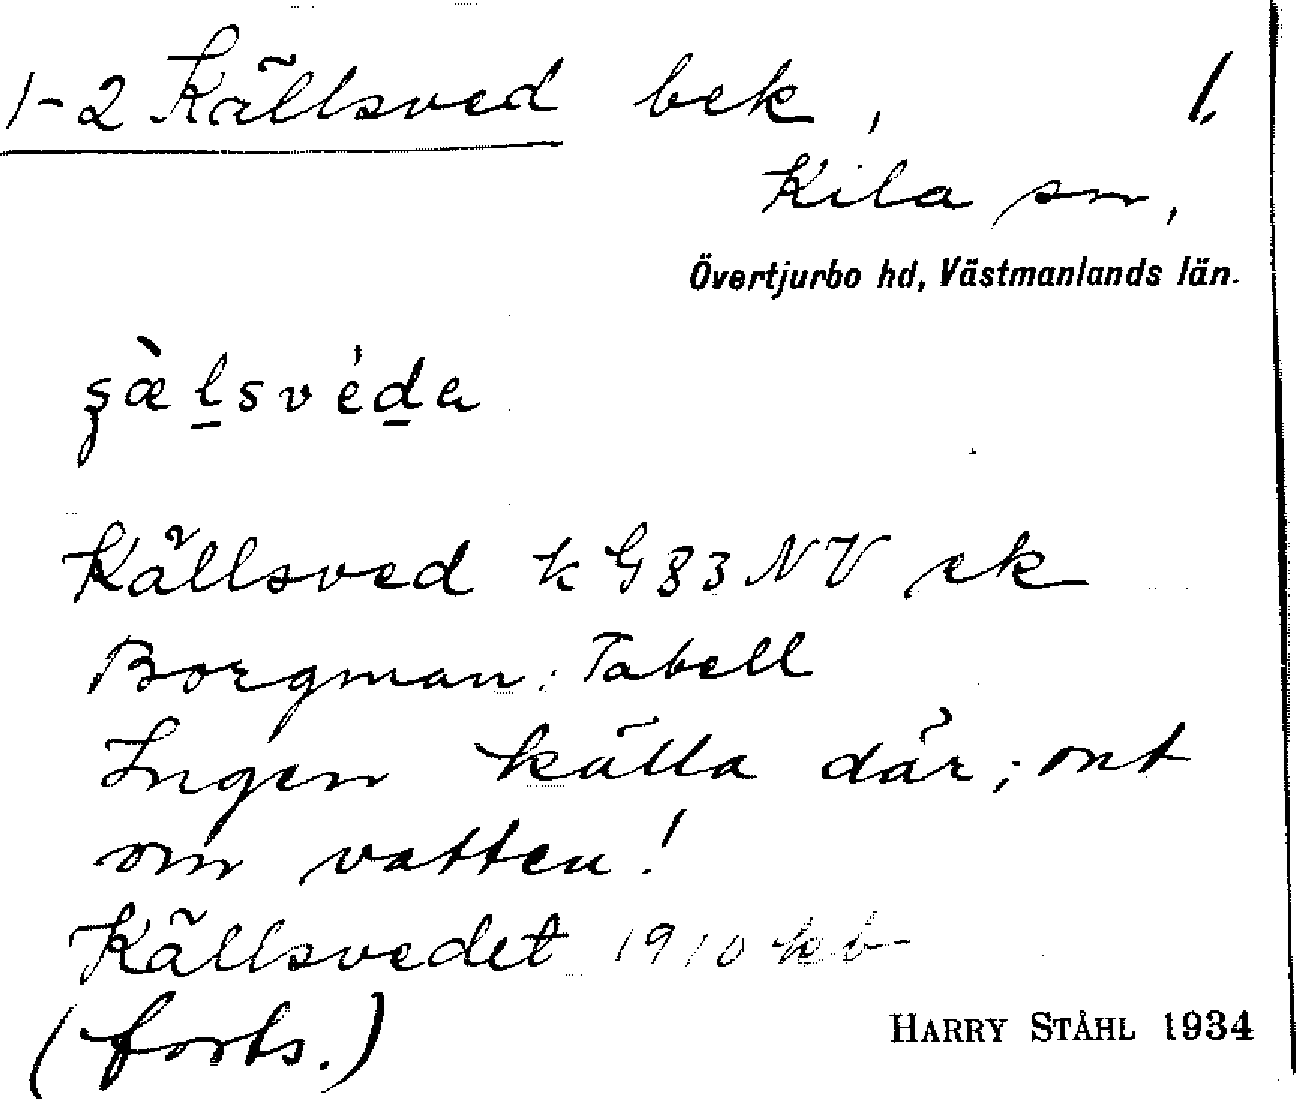 1-2 Källsved bek, 1.
Kila sn,
Övertjurbo hd, Västmanlands län.
s̨æ̀l̲svéd̲a
Källsved k G83NV ek
Borgman: Tabell
Ingen källa där; ont
om vatten!
Källsvedet 1910 kb
(forts.)
HARRY STÅHL 1934